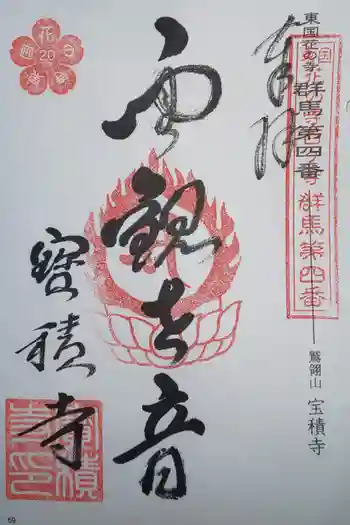 東国花の寺
群馬第四番
鷲翎山 宝積寺
奉拝
国
群馬第四番
聖観世音
寶積寺
花
20
69